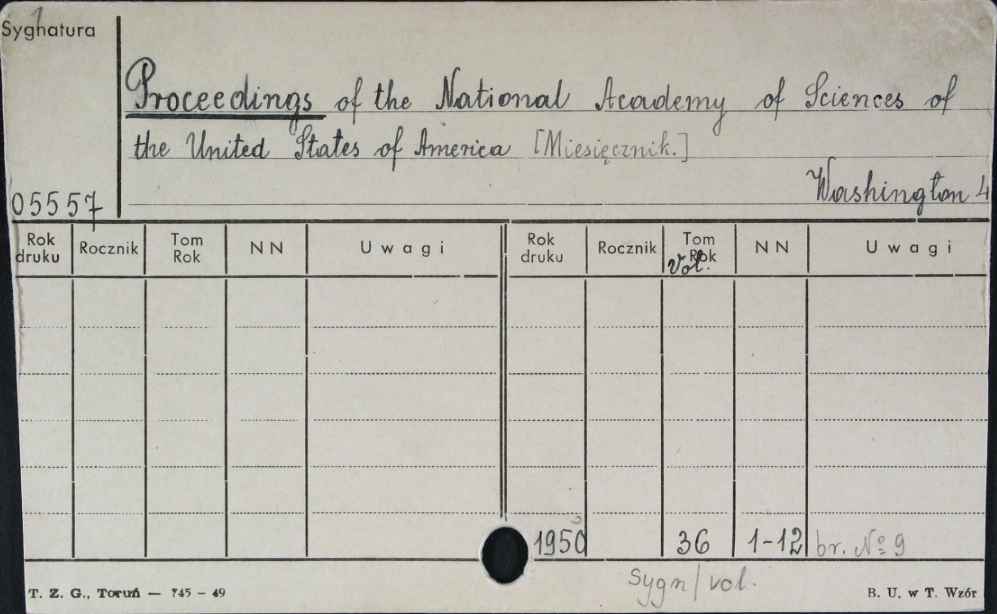 Sygnatura
Proceedings of the National Academy of Sciences of
the United States of America [Miesięcznik.]
Washington 4
05557
Rok druku Rocznik Tom Rok NN Uwagi Rok druku Rocznik Tom Rok Vol. NN Uwagi
1950 36 1-12 br. № 9
Sygn/vol.
T. Z. G., Toruń — 745 - 49 B. U. w T. Wzór